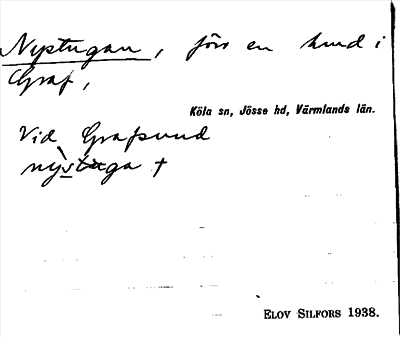 Nystugan, förr en hmd i
Graf,
Köla sn, Jösse hd, Värmlands län.
Vid Grafsund
nỳstuga †
ELOV SILFORS 1938.